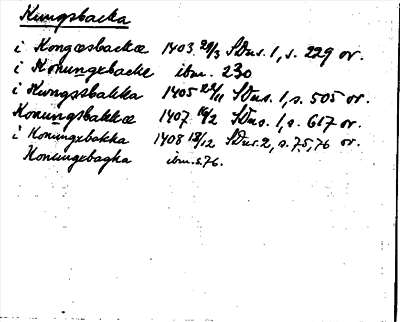 Kungsbacka
i Kongæsbackæ 1403 29/3 SDns. 1, s. 229 or.
i Konungxbacke ibm. 230
i Kungsbakka 1405 22/11 SDns. 1, s. 505 or.
Konungsbakkæ 1407 16/2 SDns. 1, s. 617 or.
i Konungxbakka 1408 18/12 SDns. 2, s. 75, 76 or.
Konungxbagha ibm. s. 76.